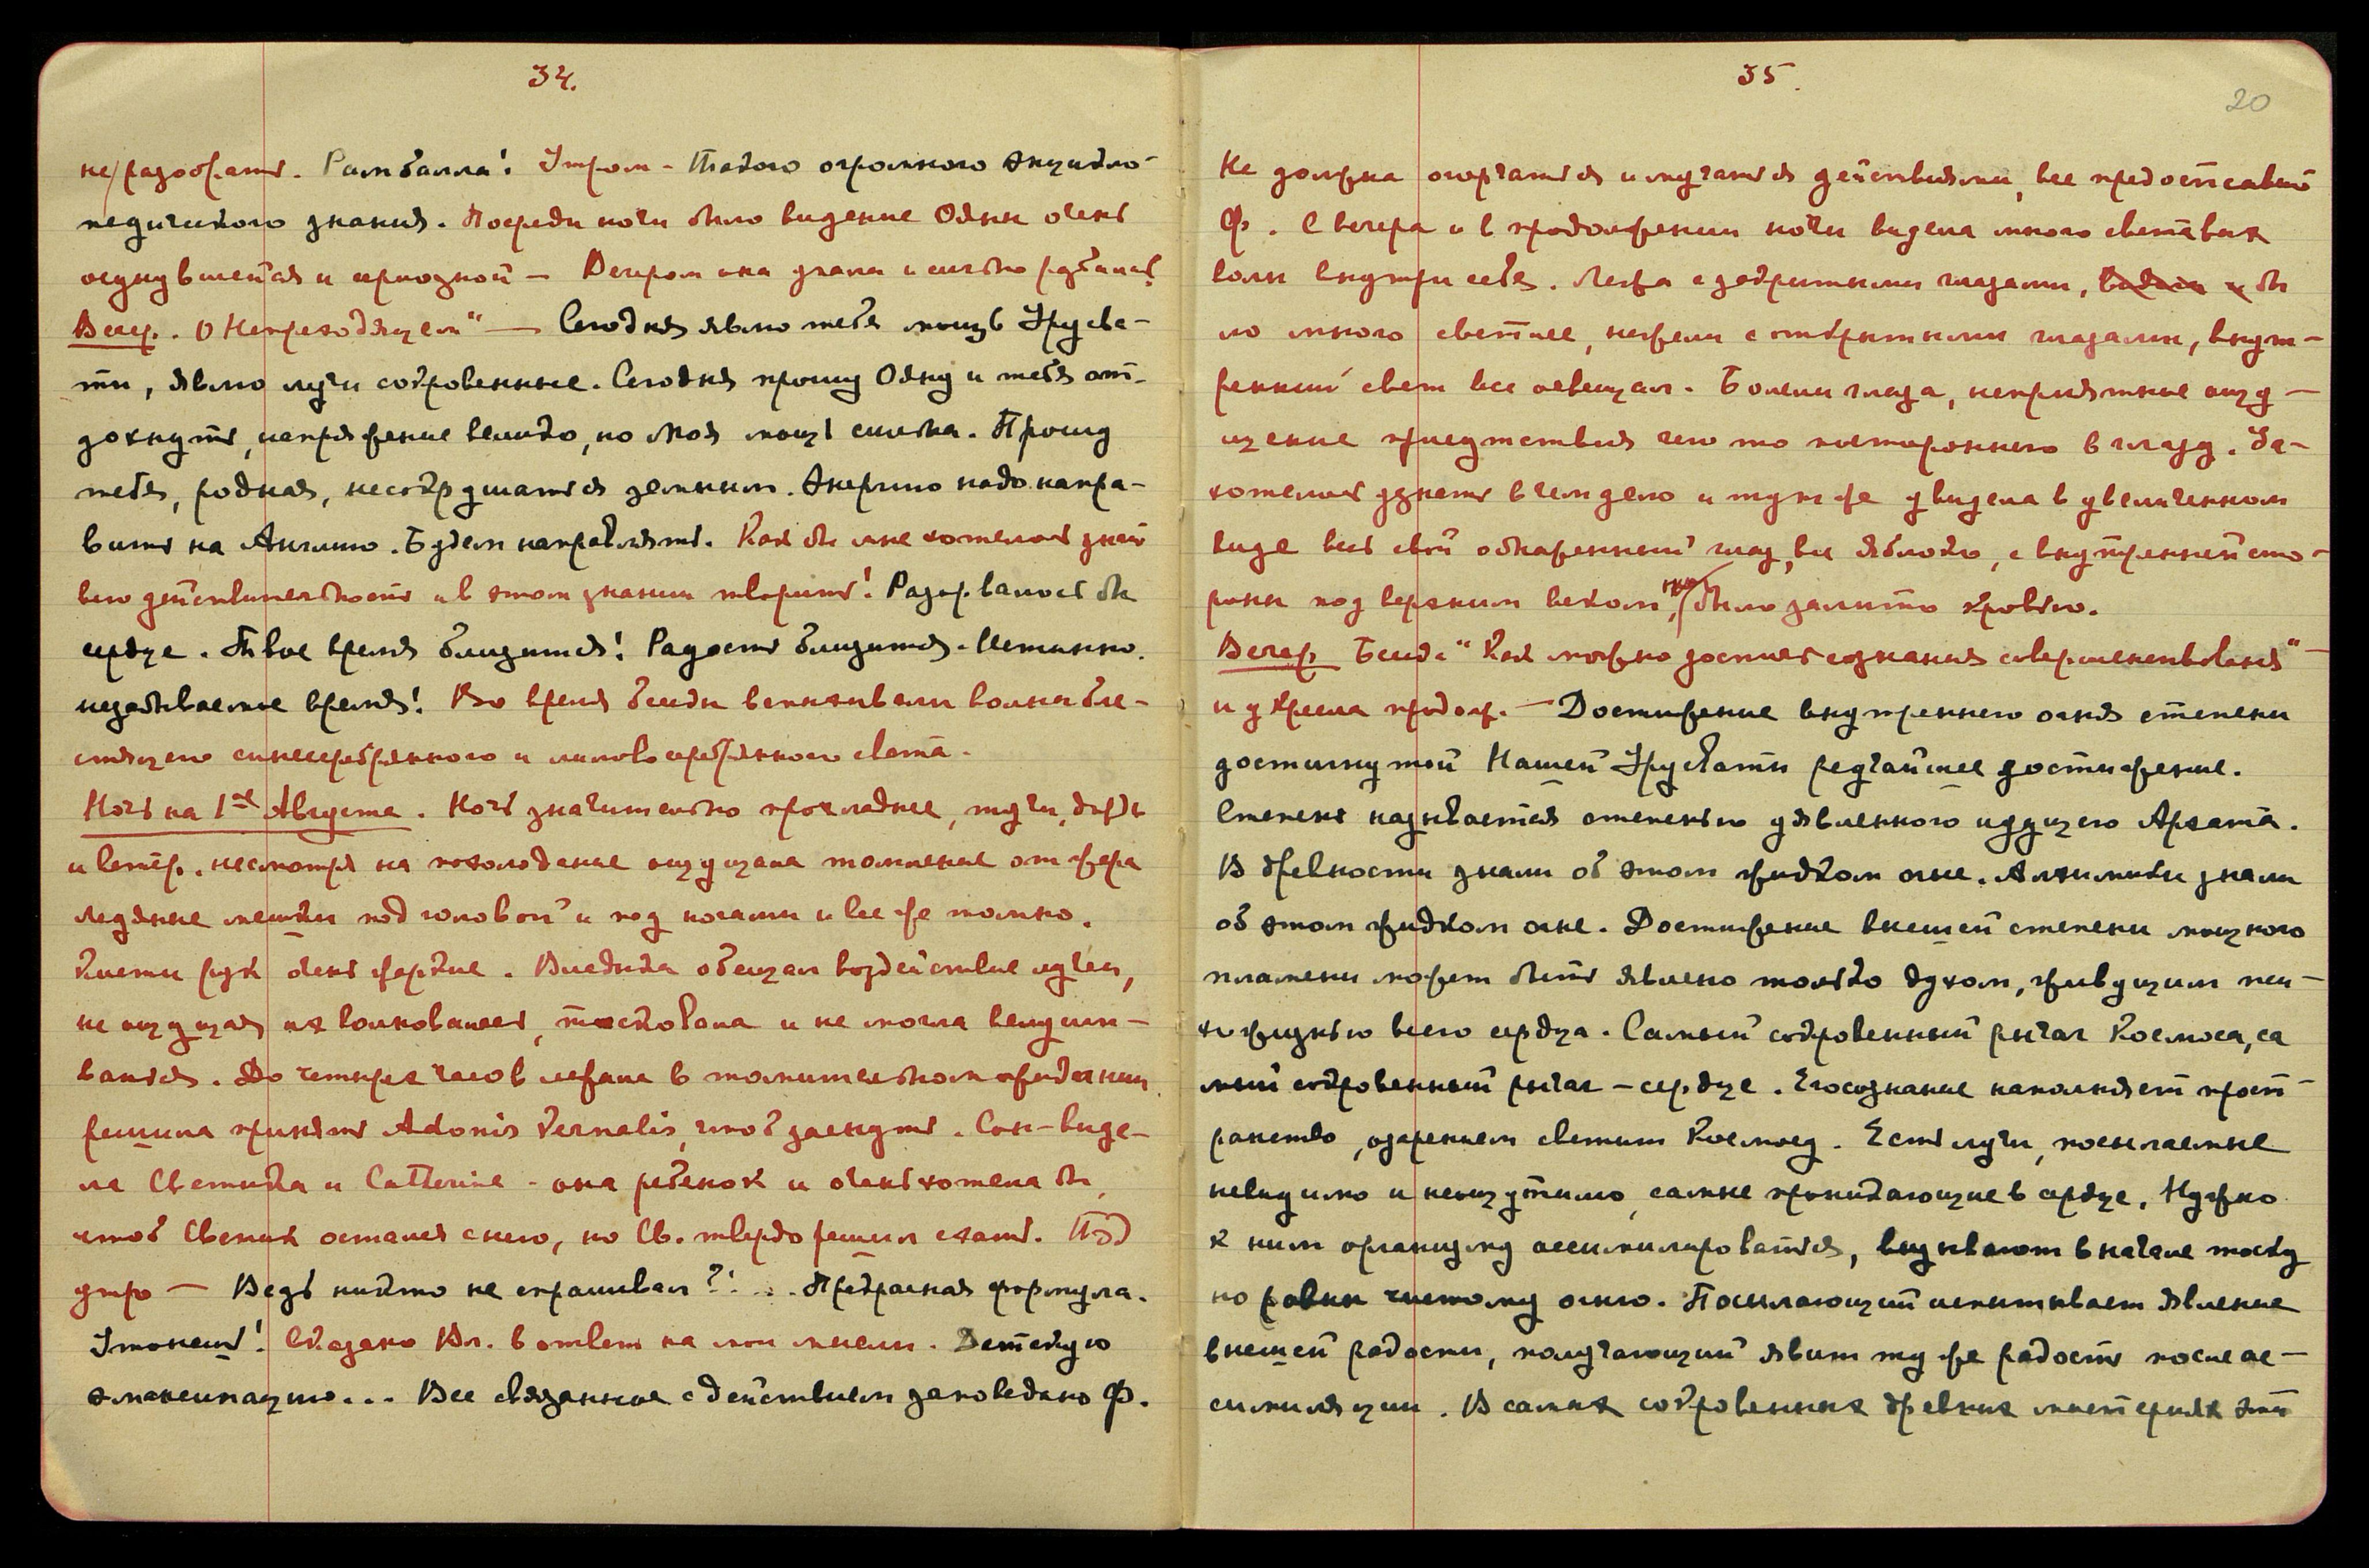 34.
не разобрать. Рамбалла! Утром – Такого огромного энцикло-
педического знания. Посреди ночи было видение Ояны очень
осунувшейся и серьозной – Вечером она упала и сильно разбилась.
Вечер. О Непреходящем" — Сегодня являю тебе мощь Урусва-
ти, являю лучи сокровенные. Сегодня прошу Ояну и тебя от-
дохнуть, напряжение велико, но Моя мощь сильна. Прошу
тебя, родная, не сокрушаться земным. Энергию надо напра-
вить на Англию. Будем направлять. Как бы мне хотелось знать
всю действительность и в этом знании творить! Разорвалось бы
сердце. Твое время близится! Радость близится. Истинно,
незабываемое время! Во время беседы вспыхивали волны бле-
стящего синесеребрянного и лиловосеребрянного света.
Ночь на 1ое Августа. Ночь значительно прохладнее, тучи, дождь
и ветер. несмотря на похолодание ощущала томление от жара
ледяные мешки под головой и под ногами и все же томно.
Кисти рук очень жаркие. Владыка обещал воздействие лучей,
не ощущая их волновалась, тосковала и не могла успокои-
ваться. До четырех часов лежала в томительном ожидании
решила принять Adonis Vernalis, чтоб заснуть. Сон – виде-
ла Светика и Catherine – она ребенок и очень хотела бы,
чтоб Светик остался с нею, но Св. твердо решил ехать. Под
утро — Ведь никто не спрашивал?!... Прекрасная формула.
Утонешь! Сказано Вл. в ответ на мои мысли. Детскую
эмансипацию... Все связанное с действием заповедано Ф.
35.
20
Не должна огорчаться и мучаться действиями, все предоставь
Ф. С вечера и в продолжении ночи видела много световых
волн внутри себя. Лежа с закрытыми глазами, бы
ло много светлее, нежели с открытыми глазами, внут-
ренний свет все освещал. Болели глаза, неприятное ощу-
щение присутствия чего то постороннего в глазу. За-
хотелось узнать в чем дело и тут же увидела в увеличенном
виде весь свой обнаженный глаз, все яблоко, с внутренней сто-
роны под верхним веком, было залито кровью.
Вечер Беседа "Как можно достичь сознания совершенствования" –
и у кресла продолж. – Достижение внутреннего огня степени
достигнутой Нашей Урусвати редчайшее достижение.
Степень называется степенью уявленного идущего Архата.
В древности знали об этом жидком огне. Алхимики знали
об этом жидком огне. Достижение высшей степени мощного
пламени может быть явлено только духом, живущим пси-
хожизнью всего сердца. Самый сокровенный рычаг Космоса, са
мый сокровенный рычаг – сердце. Его сознание наполняет прост-
ранство, озарением светит Космосу. Есть лучи, посылаемые
невидимо и неощутимо, самые проникающие в сердце. Нужно
к ним организму ассимилироваться, вызывают вначале тоску
но равны чистому огню. Посылающий испытывает явление
высшей радости, получающий явит ту же радость после ас-
симиляции. В самых сокровенных древних мистериях эти